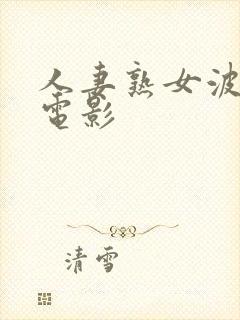 人妻熟女波
電影
清雪